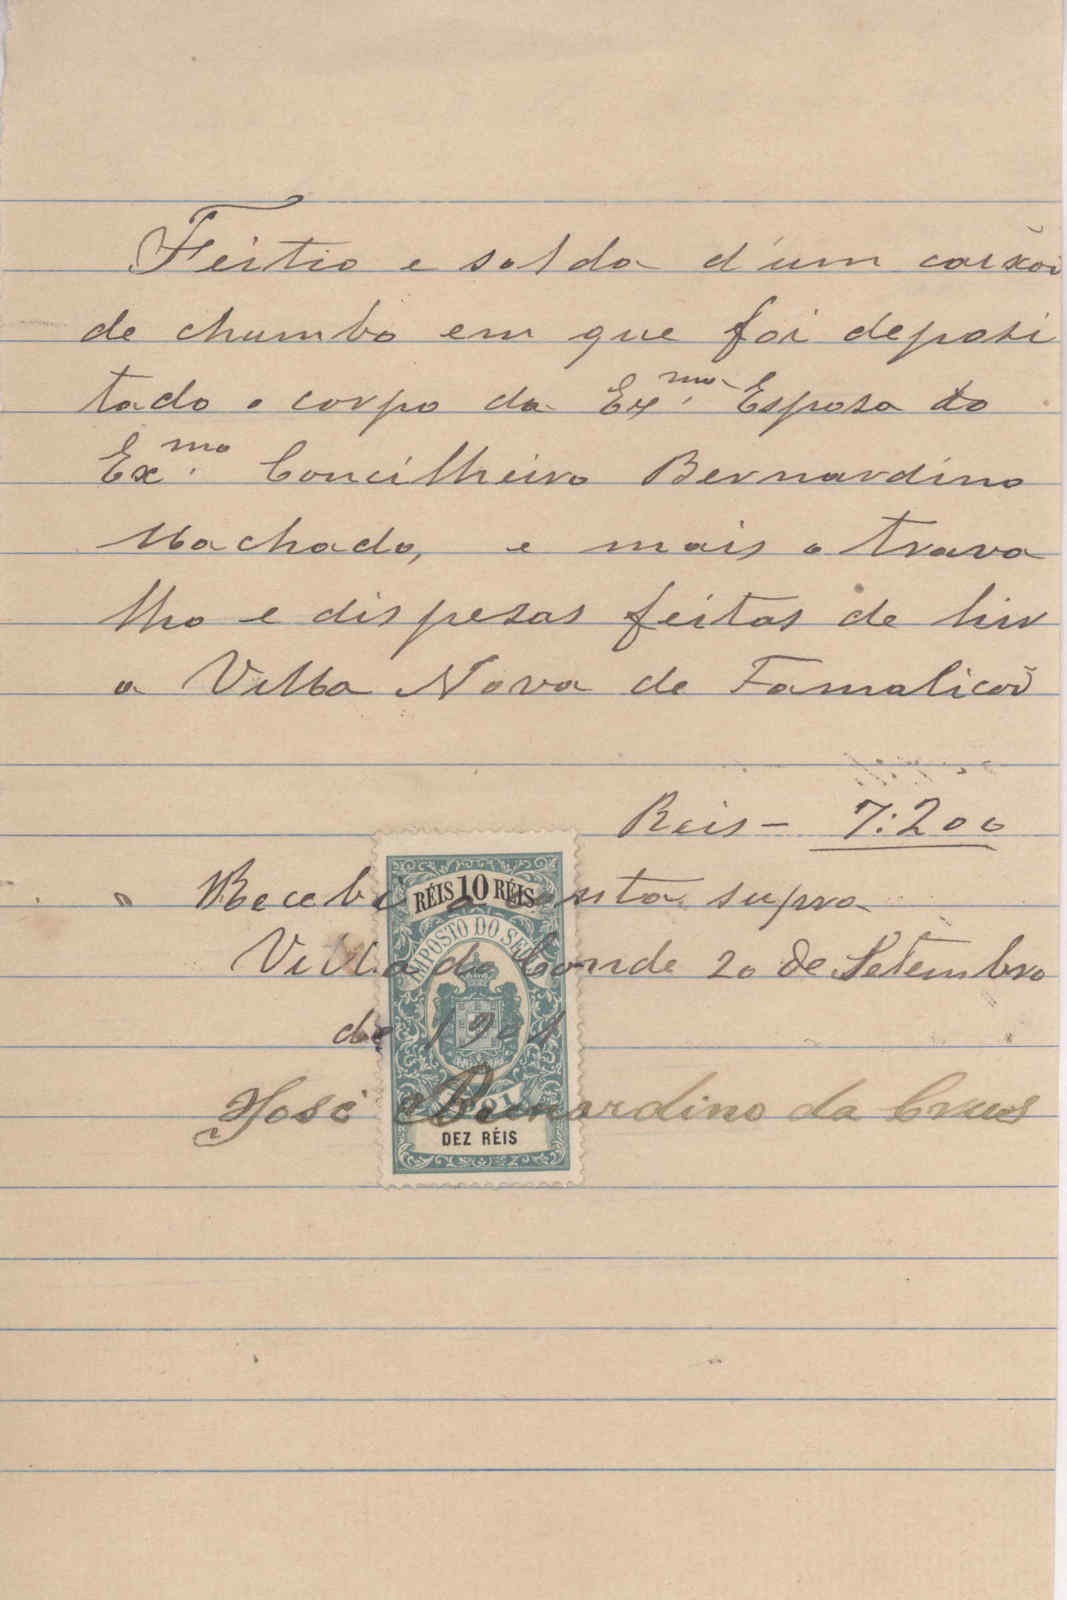 Feitio e solda d'um caixão
de chumbo em que foi deposi
tado o corpo da Ex.ma Esposa do
Ex.mo Concilheiro Bernardino
Machado, e mais o trava
lho e dispesas feitas de hir
a Villa Nova de Famalicão
Reis — 7:200
Recebi a conta supra
Villa do Conde 20 de Setembro
de 1901
José Bernardino da Crus
RÉIS 10 RÉIS
IMPOSTO DO SELLO
1901
DEZ RÉIS